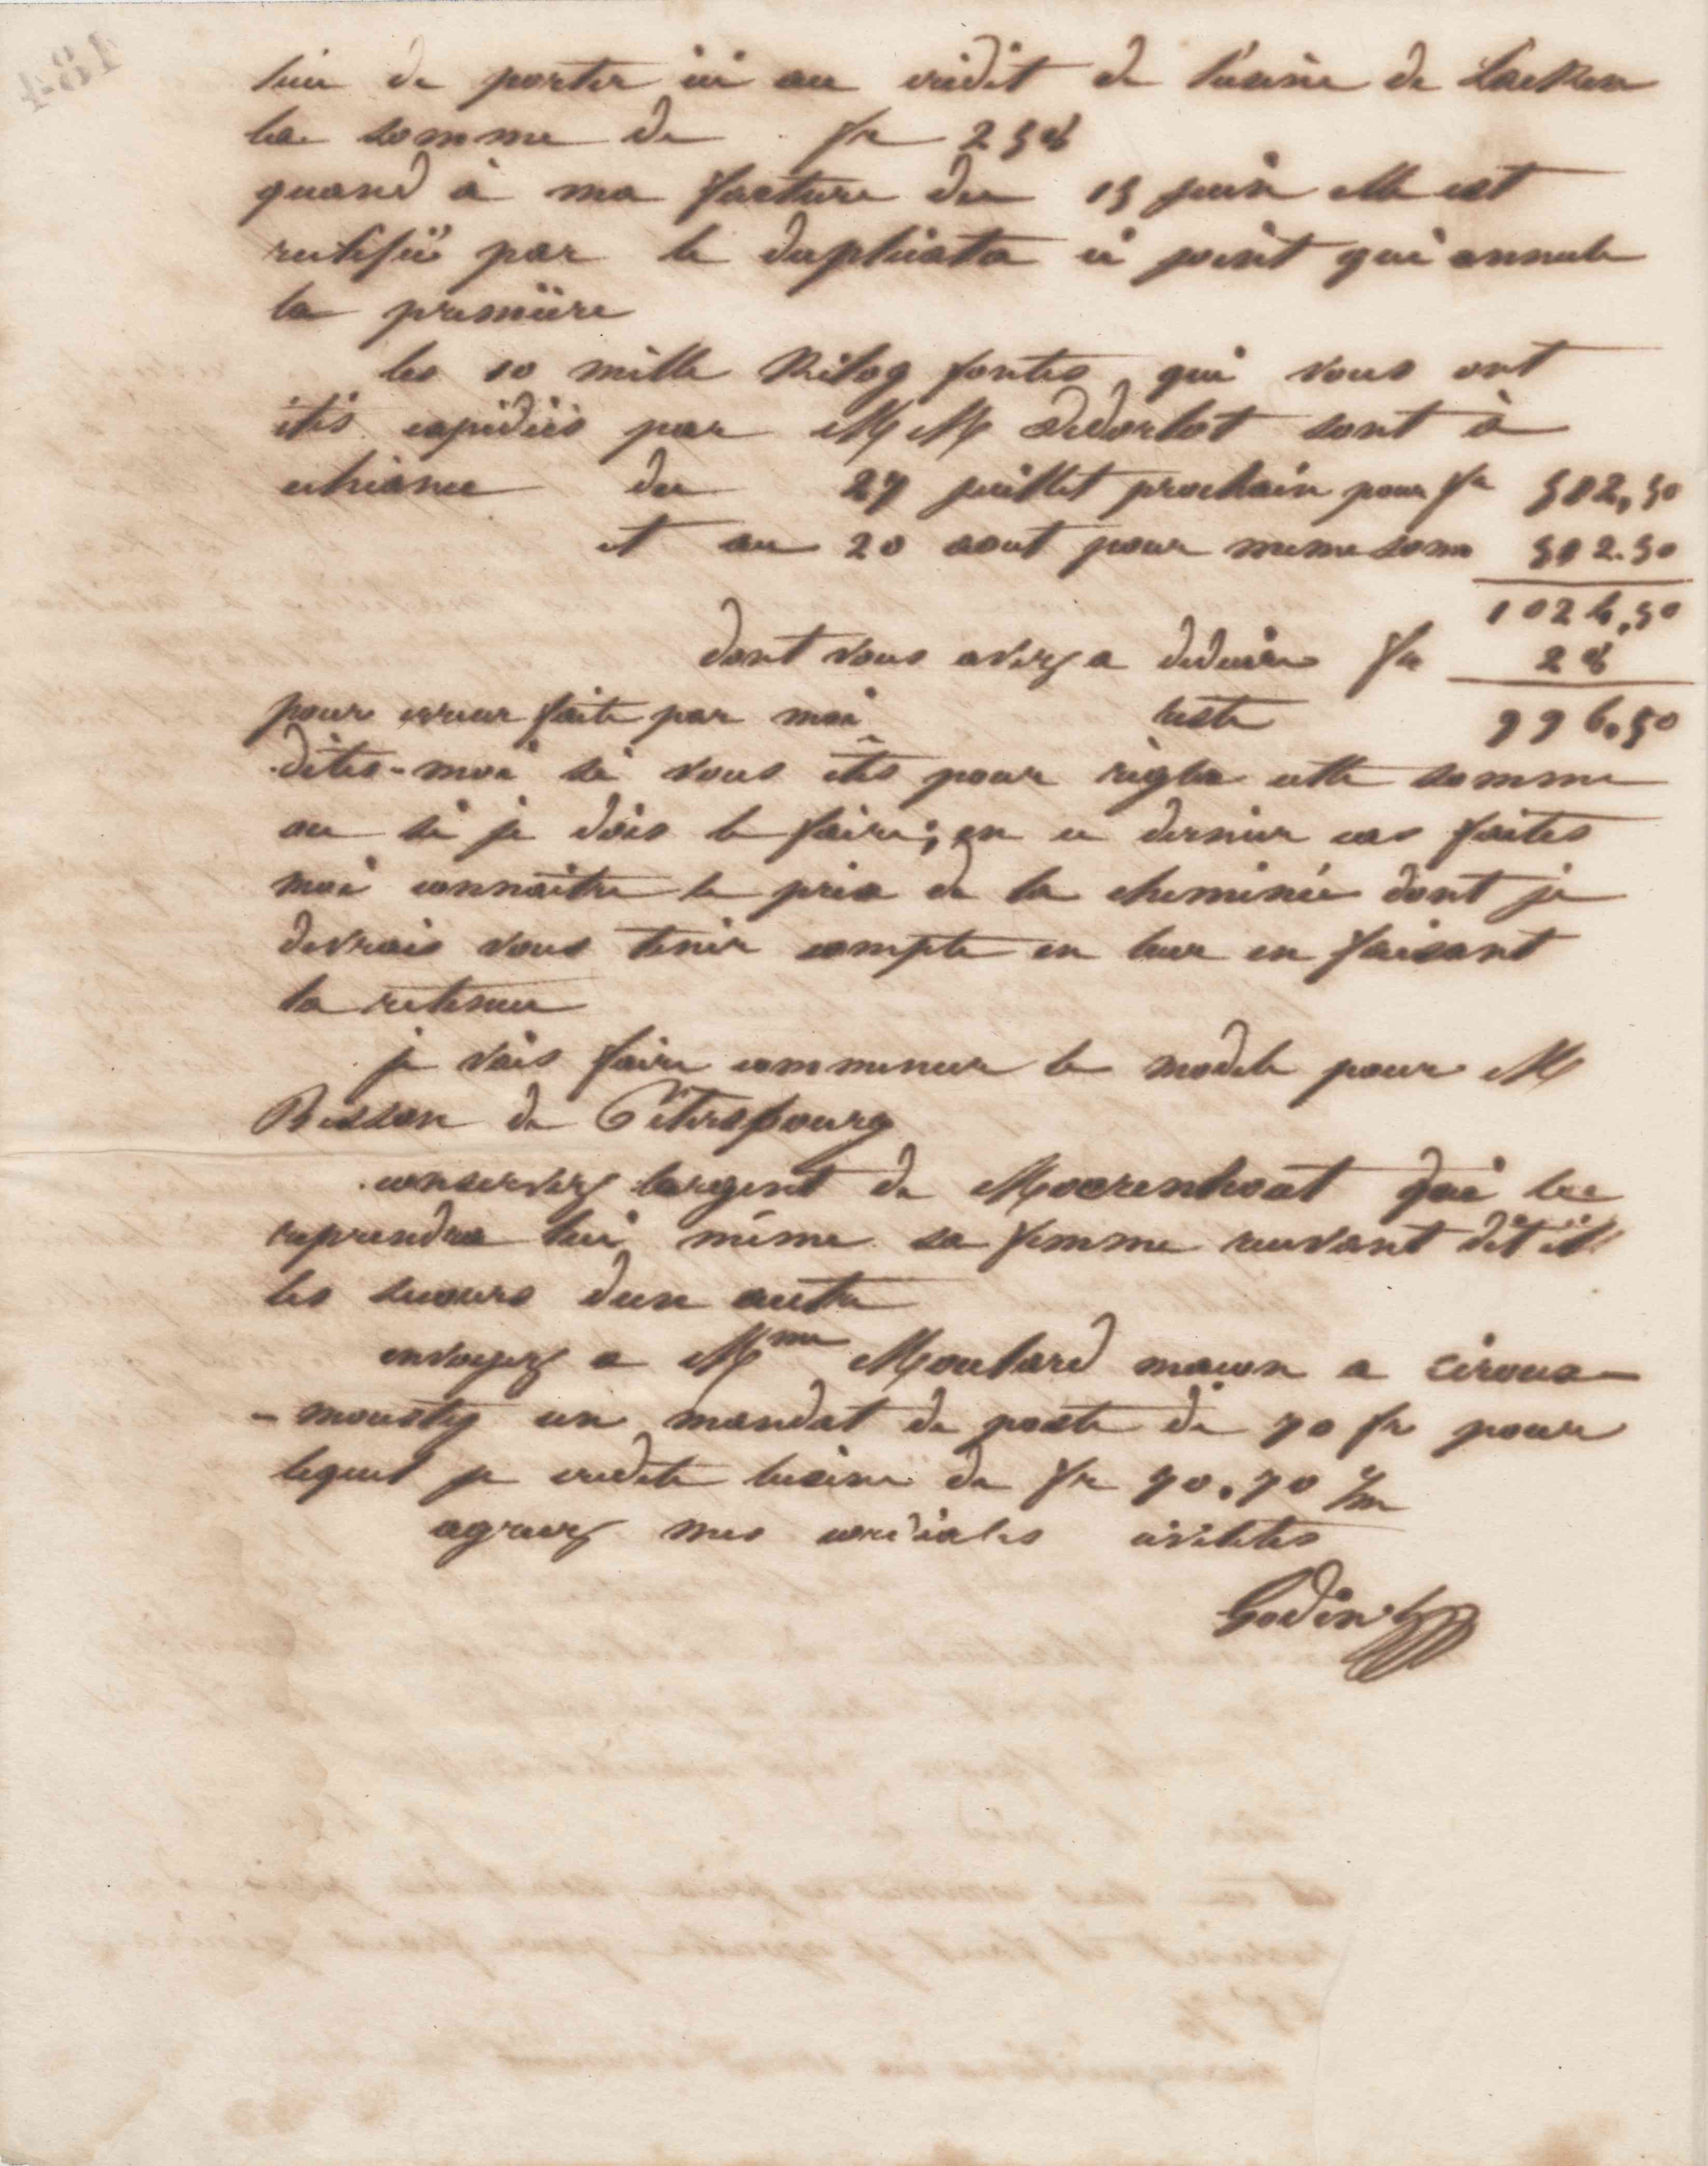 lieu de porter ici au crédit de l'usine de Laeken
la somme de fr 258
quand à ma facture du 15 juin elle est
rectifiée par le duplicata ci joint qui annule
la première
les 10 mille Kilog fontes qui vous ont
étés expédiés par MM Dedorlot sont à
echéance du 27 juillet prochain pour fr 512,50
et au 20 aout pour meme som 512.50
1024,50
dont vous avez a deduire fr 28
pour erreur faite par moi reste 996,50
dites-moi si vous êtes pour règler cette somme
ou si je dois le faire; en ce dernier cas faites
moi connaître le prix de la cheminée dont je
devrais vous tenir compte en leur en faisant
la retenue
je vais faire commencer le modele pour M
Besson de Pétersbourg
conservez largent de Moorenhout qui le
reprendra lui même sa femme recevant dit il
les secours dun autre
envoyez a Mme Moulard macon a ciroux-
-mousty un mandat de poste de 70 fr pour
lequel je credite lusine de fr 70.70
agreez mes cordiales civilités
Godin